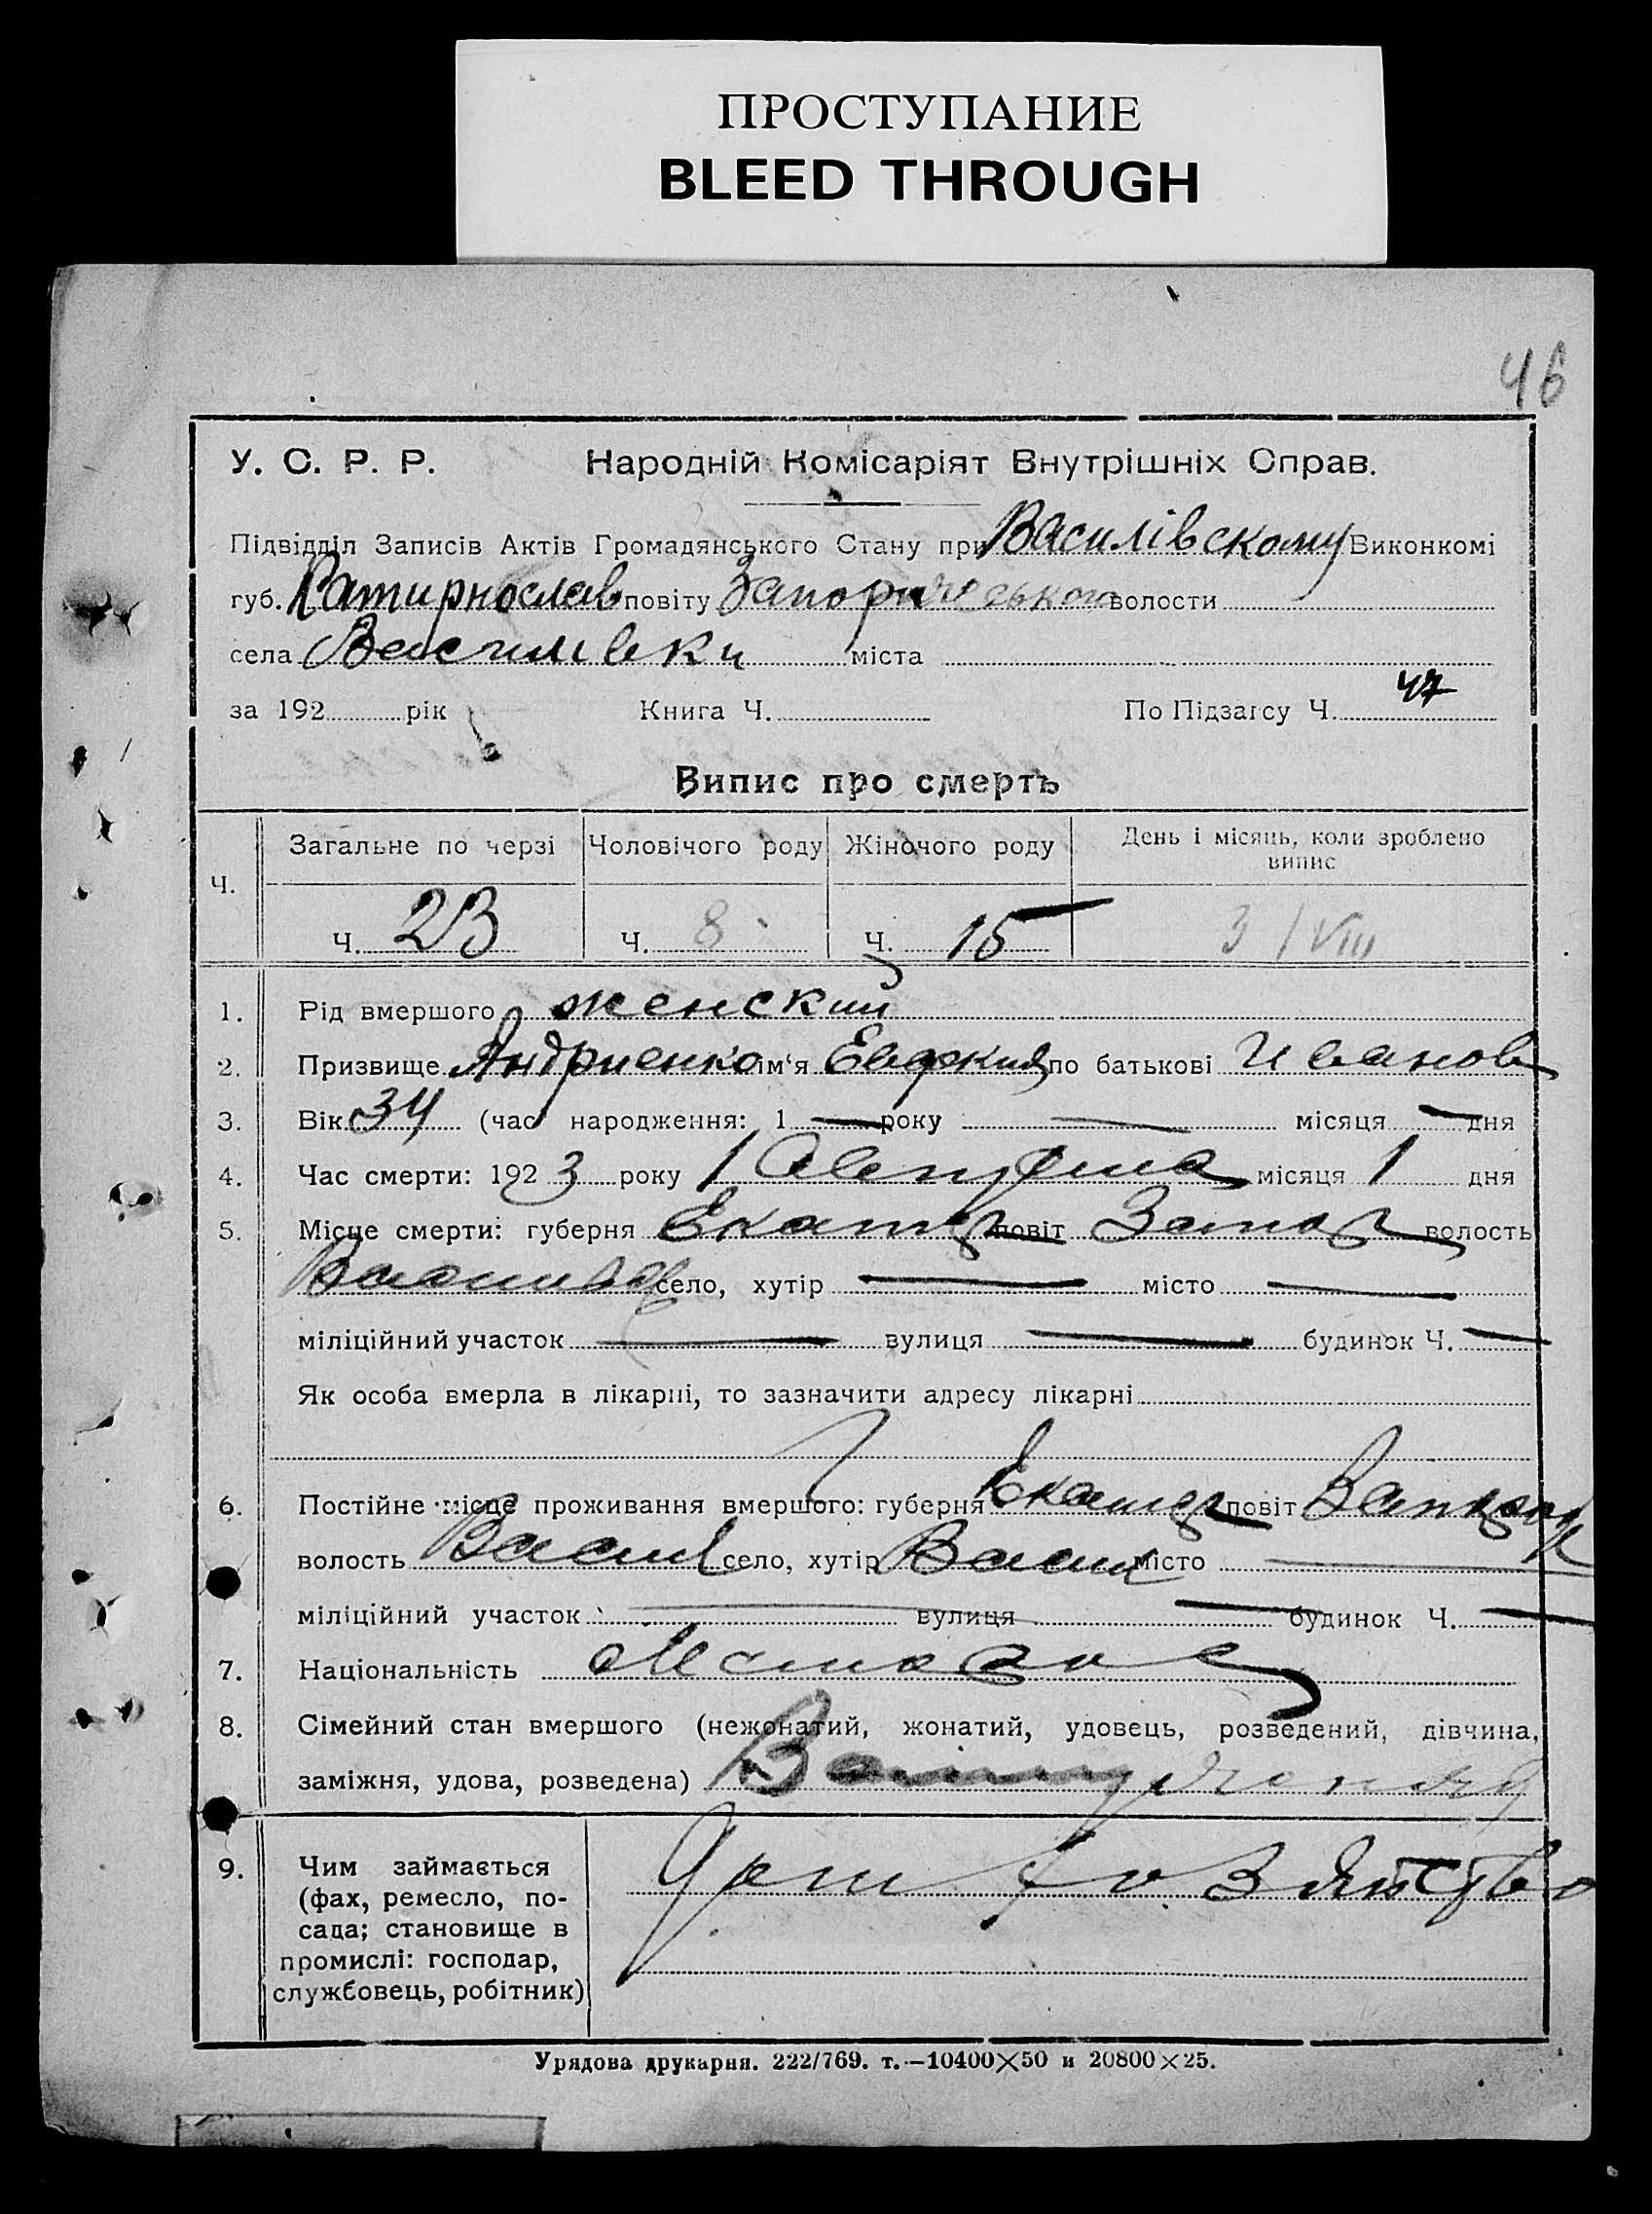 ПРОСТУПАНИЕ
BLEED THROUGH
46
У. С. Р. Р. Народній Комісаріят Внутрішніх Справ.
Підвідділ Записів Актів Громадянського Стану при Василівскому Виконкомі
губ. повіту волости
села Василивки міста
за 192 рік Книга Ч. По Підзагсу Ч. 47
Випис про смерть
Ч. Загальне по черзі Чоловічого роду Жіночого роду День і місяць, коли зроблено випис
Ч. 23 Ч. 8 Ч. 15 3/VIII
1. Рід вмершого женский
2. Призвище Андриенко ім'я по батькові Иванов
3. Вік 34 (час народження: 1 — року — місяця — дня
4. Час смерти: 1923 року 1 Августа місяця 1 дня
5. Місце смерти: губерня Екатер повіт Запор волость
село, хутір — місто —
міліційний участок — вулиця — будинок Ч. —
Як особа вмерла в лікарні, то зазначити адресу лікарні
6. Постійне місце проживання вмершого: губерня Екатер повіт
волость Васил село, хутір Васил місто —
міліційний участок — вулиця — будинок Ч. —
7. Національність
8. Сімейний стан вмершого (нежонатий, жонатий, удовець, розведений, дівчина,
заміжня, удова, розведена)
9. Чим займається
(фах, ремесло, по-
сада; становище в
промислі: господар,
службовець, робітник)
Урядова друкарня. 222/769. т.—10400×50 и 20800×25.